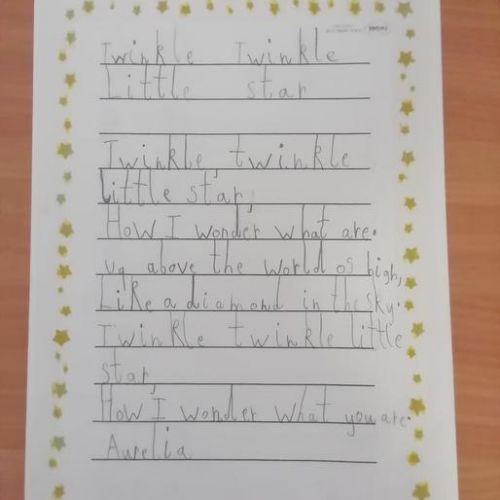 Twinkle Twinkle
Little star
Twinkle, twinkle
Little star,
How I wonder what are.
Up above the world os high,
Like a diamond in the sky.
Twinkle twinkle little
star,
How I wonder what you are.
Aurelia